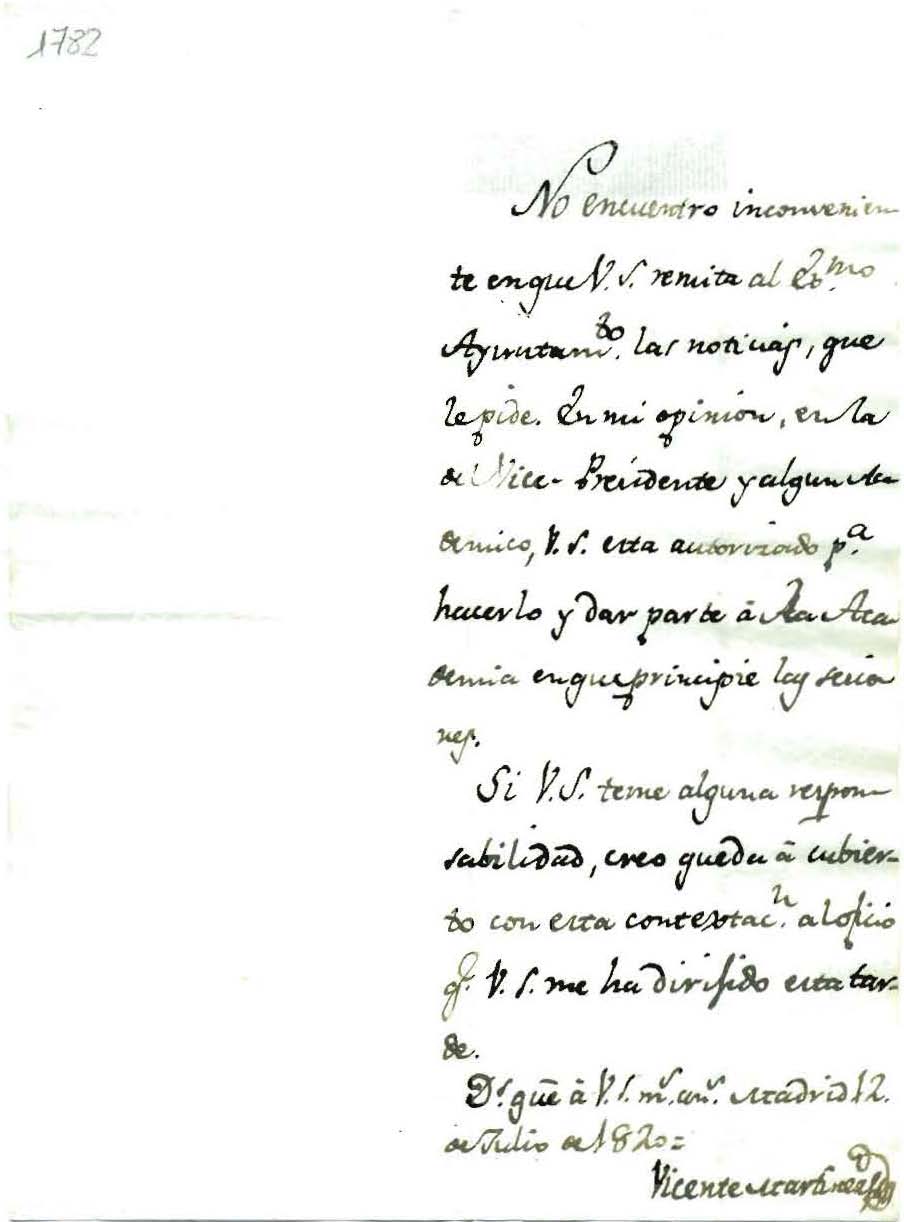 1782
No encuentro inconvenien-
te en que V. S. remita al Exmo.
Ayuntamto. las noticias, que
le pide. En mi opinion, en la
del Vice-Presidente y algun Aca-
demico, V. S. esta autorizado pa.
hacerlo y dar parte á la Aca-
demia en que principie las sesio-
nes.
Si V. S. teme alguna respon-
sabilidad, creo queda á cubier-
to con esta contextacn. al oficio
q. V. S. me ha dirijido esta tar-
de.
Ds. gue á V. S. ms. as. Madrid 12.
de Julio de 1820=
Vicente Martinez